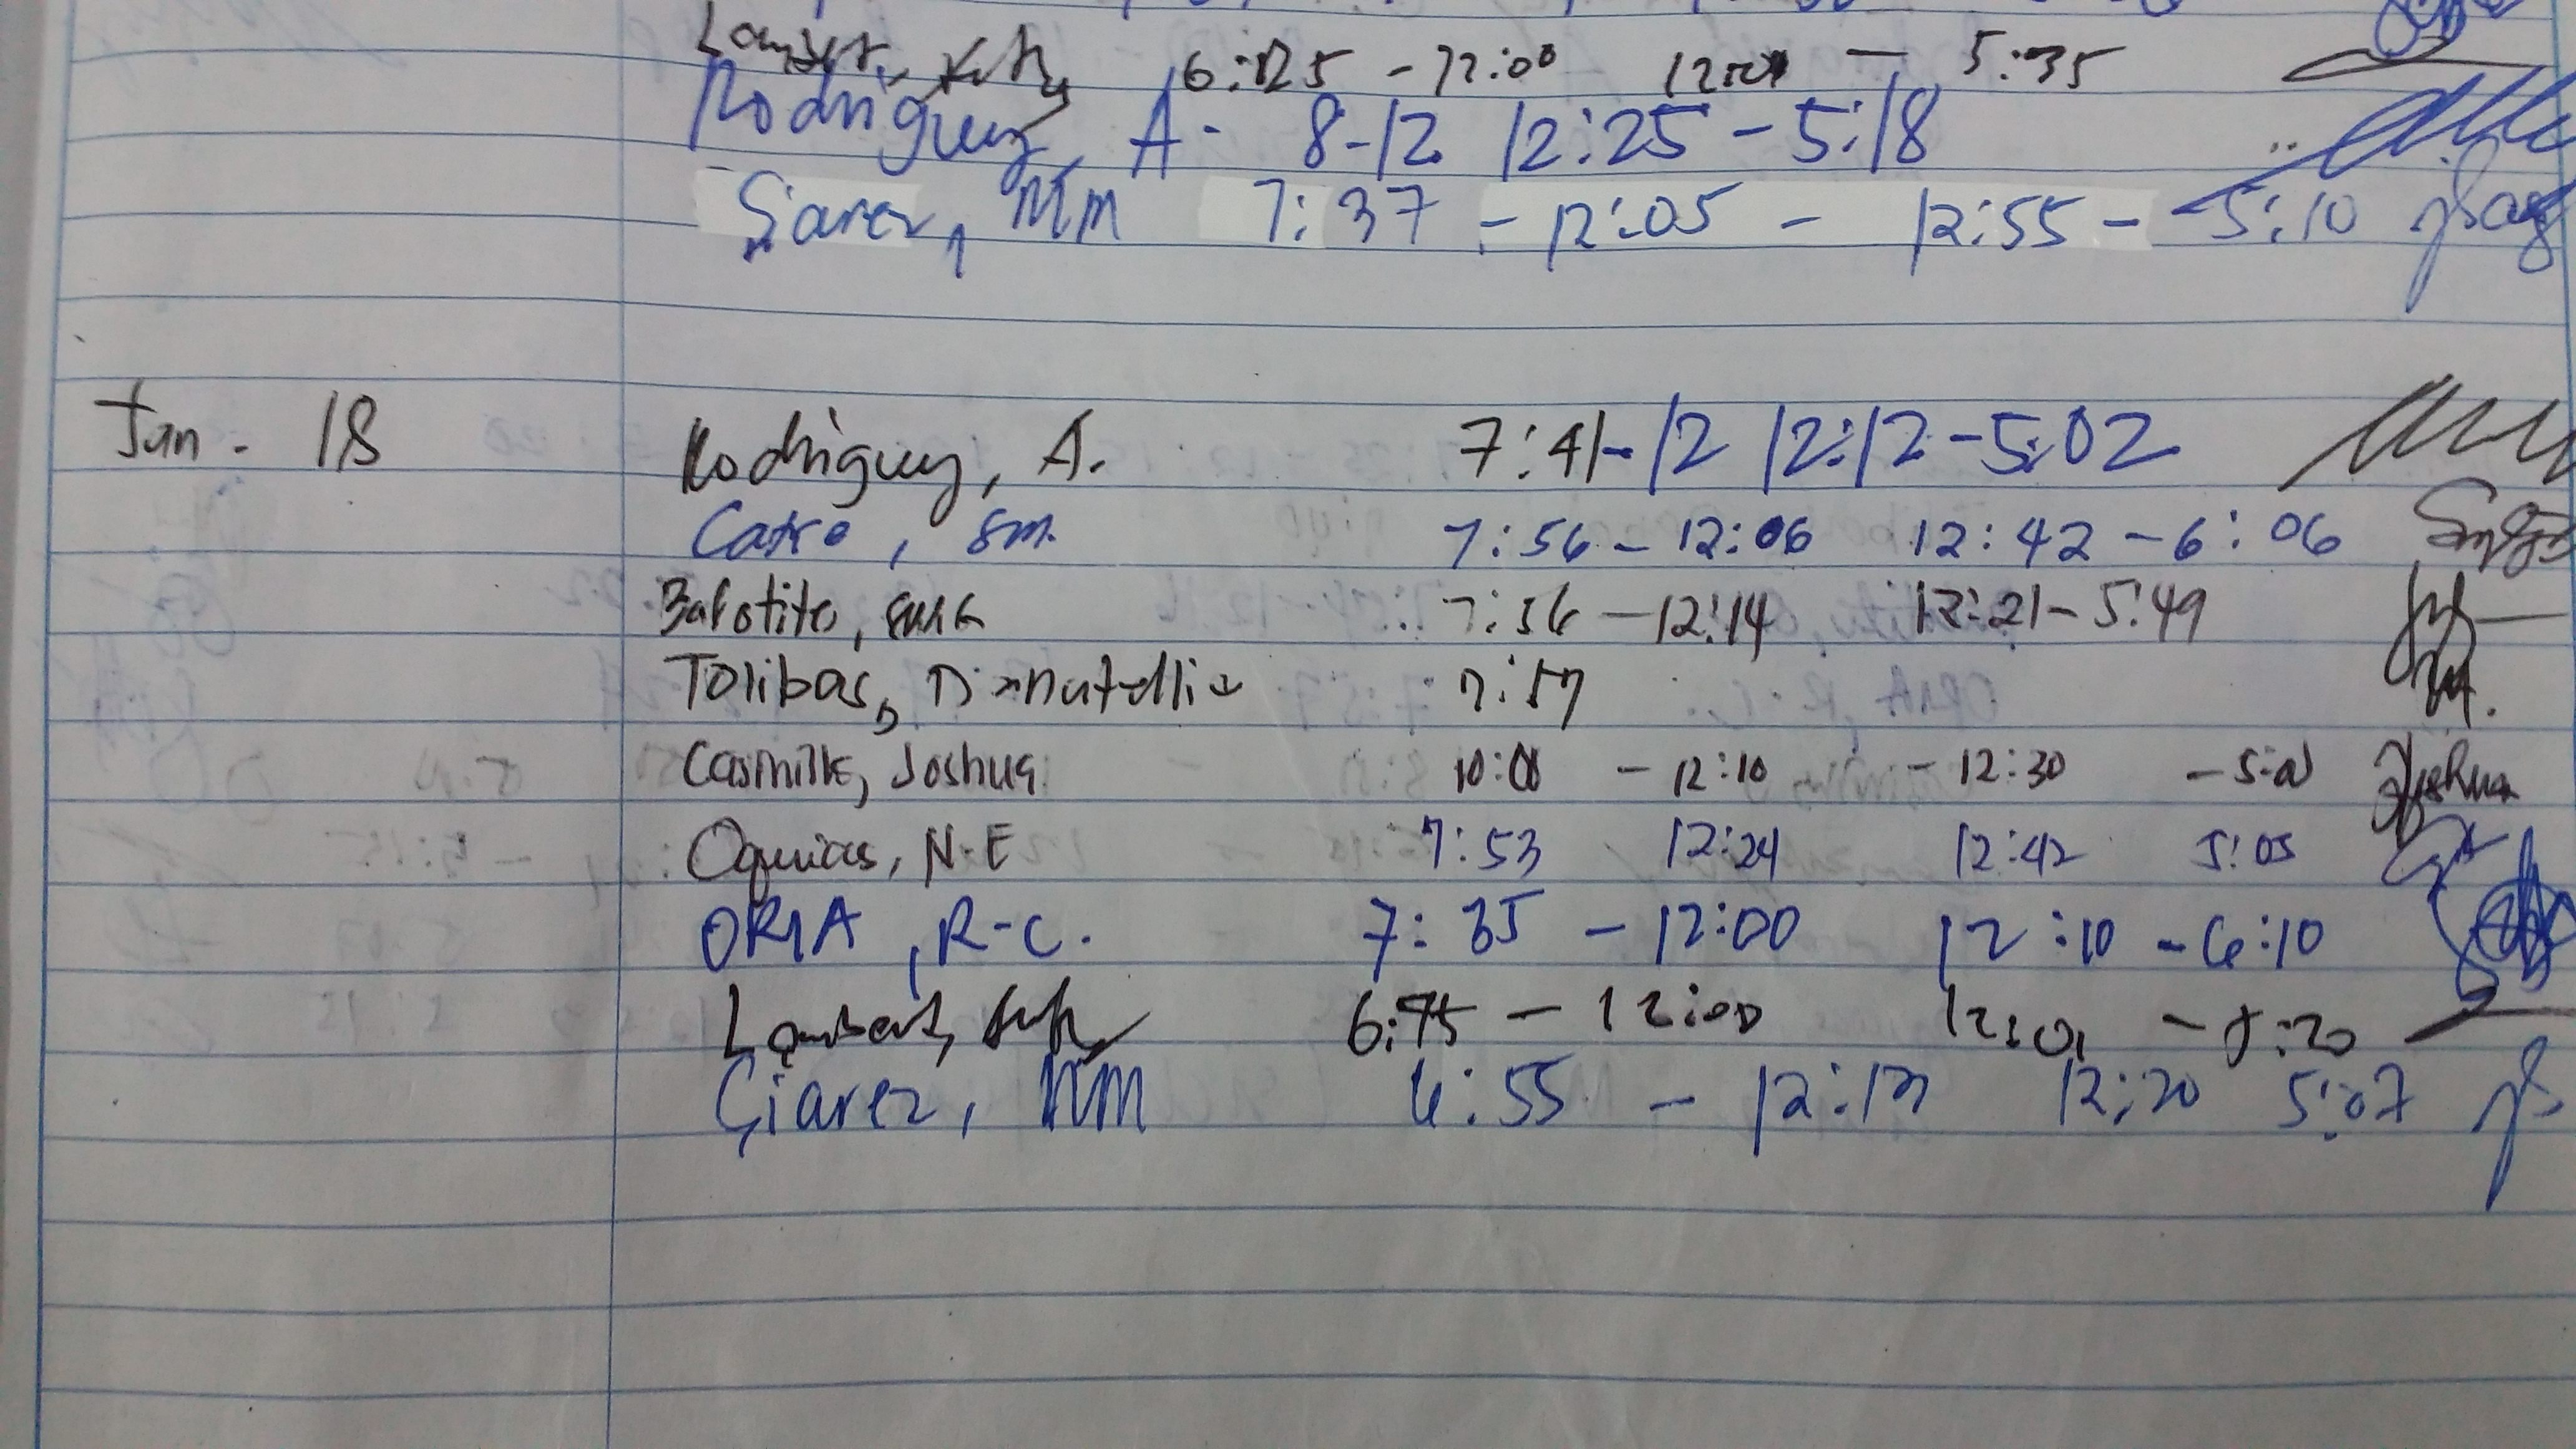 6: 25 - 12:00 12:01 — 5:35
Rodriguez, A- 8-12 12:25 - 5:18
Siarez, MM 7:37 - 12:05 - 12:55 - 5:10
Jan. 18 Rodriguez, A. 7:41-12 12:12-5:02
Castro, SM. 7:56 - 12:06 12:42 - 6:06
Balotito, 7:56 - 12:14 12:21 - 5:49
Tolibas, 7:57
Casmille, Joshua 10:01 - 12:10 - 12:30 Joshua
Oquias, N.E 7:53 12:24 12:42 5:05
ORIA, R-C. 7:35 - 12:00 12:10 - 6:10
Lambert, - 12:00 12:01 - 5:20
Siarez, MM 6:55 - 12:13 12:20 5:07